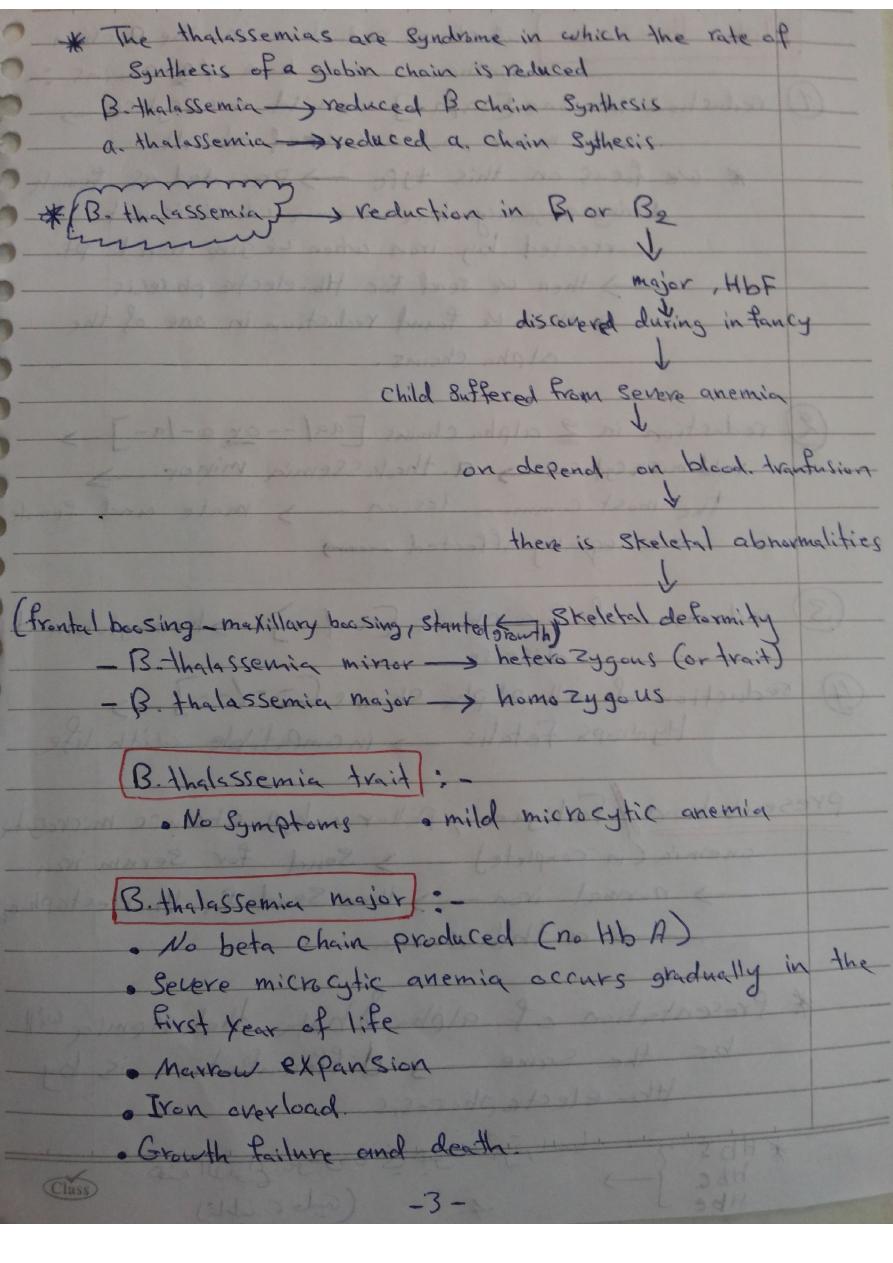 * The thalassemias are syndrome in which the rate of
synthesis of a globin chain is reduced
B.thalassemia → reduced B chain synthesis
a. thalassemia → reduced a. chain sythesis
* B. thalassemia → reduction in B1 or B2
↓
major , HbF
↓
discovered during infancy
↓
child suffered from severe anemia
↓
on depend on blood. tranfusion
↓
there is skeletal abnormalities
↓
(frontal boosing - maxillary boosing, stanted growth) ← skeletal deformity
- B.thalassemia minor → heterozygous (or trait)
- B. thalassemia major → homozygous
B.thalassemia trait :-
• No symptoms • mild microcytic anemia
B.thalassemia major :-
• No beta chain produced (no Hb A)
• Severe microcytic anemia occurs gradually in the
first year of life
• Marrow expansion
• Iron overload.
• Growth failure and death.
Class
-3-